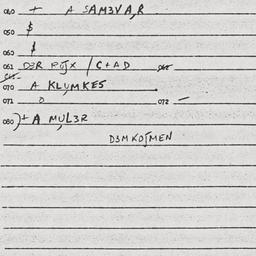 040 + A SAM3VA,R
050 $
060 $
061 D3R POJX / C+AD 062
070 A KLUMKES
071 0 072 —
080 )+ A MUL3R
D3MKOJMEN